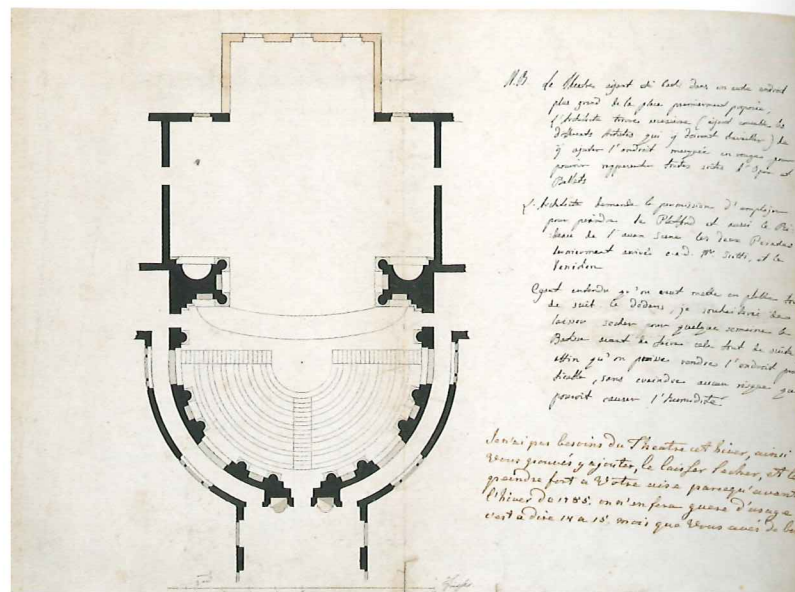 N.B. Le Theatre etant dans un autre endroit
plus grand de la place premierement proposée,
l'Architecte trouve necessaire (ayant consulté les
differents Artistes qui y doivent travailler) de
y ajouter l'endroit marquée en rouge pour
pouvoir representer toutes sortes d'Opera et
Ballets
L'Architecte demande la permission d'employer
pour peindre le Platfond et aussi le Ri
deau de l'avan Scene les deux
dernierment arrivés c.a.d. Mr. Scotti, et le
Ayant entendu qu'on avait en platre tou
de suit le dedans, je souhaiterai de
laisser secher pour quelque semaine le
avant de faire cela tout de suite
affin qu'on puisse rendre l'endroit pra
ticable, sans craindre aucun risque que
pouroit causer l'humidité.
Je n'ai pas besoins du Theatre cet hiver, ainsi
Vous pouvés y ajouter, le laisser secher, et le
peindre fort a Votre aise parcequ'avant
l'hiver de 1785. on n'en fera guere d'usage
c'est a dire 14 a 15. mois que Vous avés de